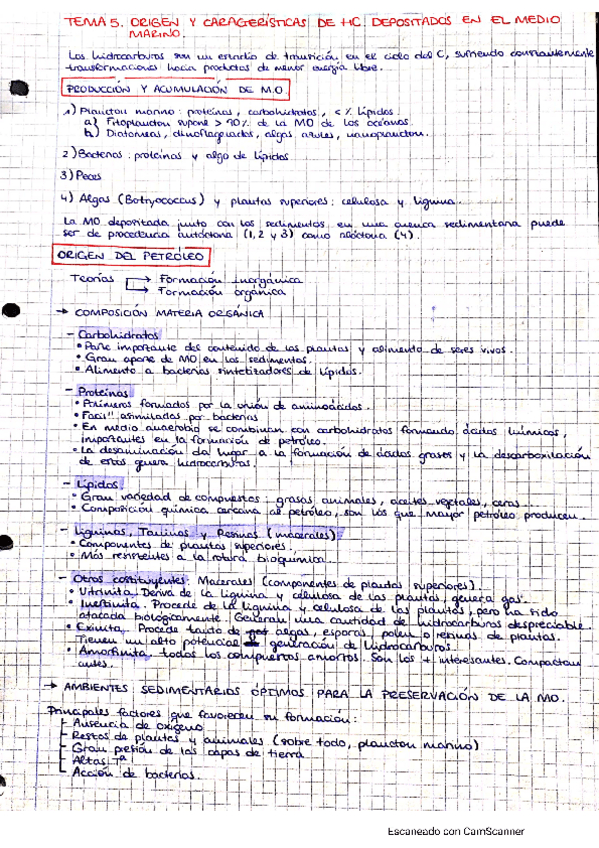 TEMA 5. ORIGEN Y CARACTERÍSTICAS DE HC DEPOSITADOS EN EL MEDIO
MARINO.
Los hidrocarburos son un estadio de transición en el ciclo del C, sufriendo constantemente
transformaciones hacia productos de menor energía libre.
PRODUCCIÓN Y ACUMULACIÓN DE M.O.
1) Plancton marino: proteínas, carbohidratos, < % lípidos.
a) Fitoplancton supone > 90% de la MO de los océanos.
b) Diatomeas, dinoflagelados, algas azules, nanoplancton.
2) Bacterias: proteínas y algo de lípidos
3) Peces
4) Algas (Botryococcus) y plantas superiores: celulosa y lignina.
La MO depositada junto con los sedimentos en una cuenca sedimentaria puede
ser de procedencia autóctona (1, 2 y 3) como alóctona (4).
ORIGEN DEL PETRÓLEO
Teorías → Formación inorgánica
→ Formación orgánica
→ COMPOSICIÓN MATERIA ORGÁNICA
- Carbohidratos
• Parte importante del contenido de las plantas y alimento de seres vivos.
• Gran aporte de MO en los sedimentos.
• Alimento a bacterias sintetizadores de lípidos.
- Proteínas
• Polímeros formados por la unión de aminoácidos.
• Fácil asimiladas por bacterias
• En medio anaerobio se combinan con carbohidratos formando ácidos húmicos,
importantes en la formación de petróleo.
• La desaminación da lugar a la formación de ácidos grasos y la descarboxilación
de estos genera hidrocarburos.
- Lípidos
• Gran variedad de compuestos: grasas animales, aceites vegetales, ceras.
• Composición química cercana al petróleo, son los que mayor petróleo producen.
- Ligninas, Taninos y Resinas (macerales)
• Componentes de plantas superiores.
• Más resistentes a la rotura bioquímica.
- Otros costituyentes: Macerales (componentes de plantas superiores).
• Vitrinita. Deriva de la lignina y celulosa de las plantas, genera gas.
• Inertinita. Procede de la lignina y celulosa de las plantas, pero ha sido
atacada biológicamente. Generan una cantidad de hidrocarburos despreciable.
• Exinita. Procede tanto de algas, esporas, polen o resinas de plantas.
Tienen un alto potencial generación de hidrocarburos.
• Amorfinita, todos los compuestos amorfos. Son los + interesantes. Compactan
antes.
→ AMBIENTES SEDIMENTARIOS ÓPTIMOS PARA LA PRESERVACIÓN DE LA MO.
Principales factores que favorecen su formación:
- Ausencia de oxígeno
- Restos de plantas y animales (sobre todo, plancton marino)
- Gran presión de las capas de tierra
- Altas Tª
- Acción de bacterias.
Escaneado con CamScanner